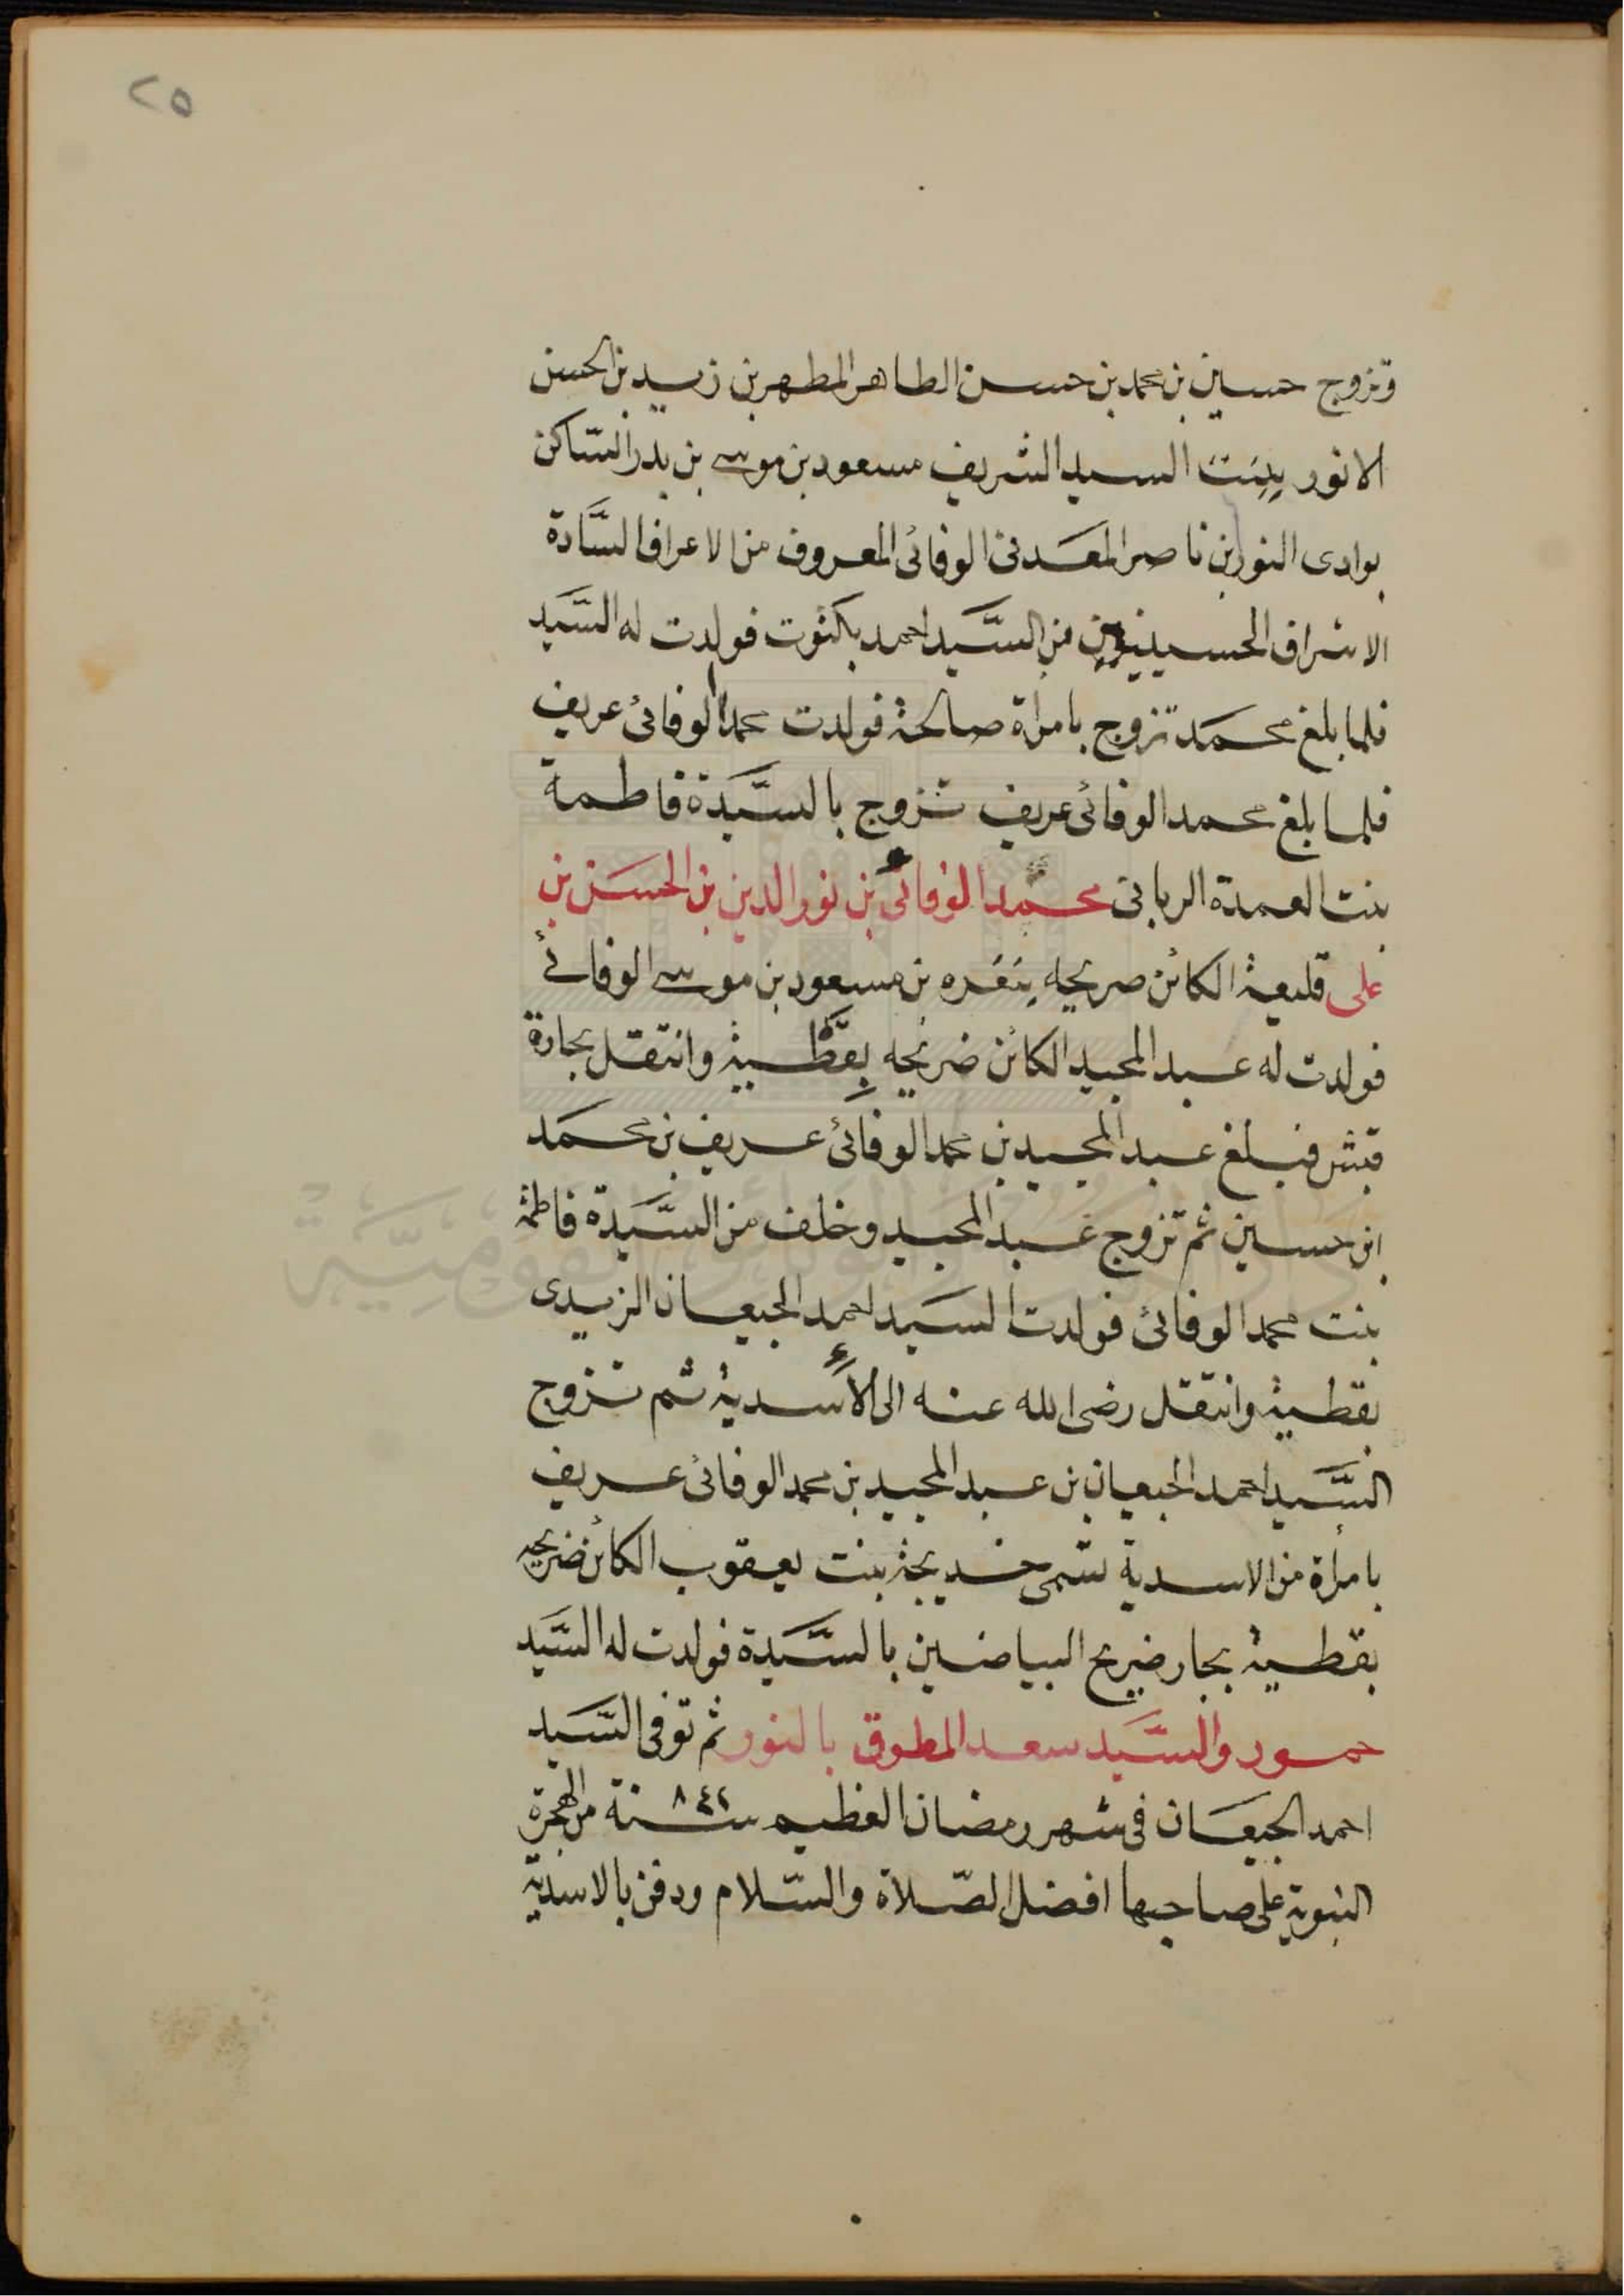 ٢٥
وتزوج حسين بن محمد بن حسن الطاهر المطهر بن زيد بن الحسن
الانور ببنت السيد الشريف مسعود بن موسى بن بدر الساكن
بوادى النور بن ناصر المعدنى الوفائى المعروف من الاعراف السَّادة
الاشراف الحسينيين من السَّيد احمد بكتوت فولدت له السَّيد
فلما بلغ محمد تزوج بامراة صالحة فولدت محمد الوفائى عريف
فلما بلغ محمد الوفائى عريف تزوج بالسَّيدة فاطمة
بنت العمدة الربانى محمد الوفائى بن نور الدين بن الحسن بن
على قليعة الكائن صريحه بنقره بن مسعود بن موسى الوفائى
فولدت له عبد المجيد الكائن ضريحه بِقَطْيية وانتقل بجارة
قبش فبلغ عبد المجيد بن محمد الوفائى عريف بن محمد
ابن حسين ثم تزوج عبد المجيد وخلف من السَّيدة فاطمة
بنت محمد الوفائى فولدت السيد احمد الجيعان الزيدى
بقطيية وانتقل رضى الله عنه الى الأسدية ثم تزوج
السَّيد احمد الجيعان بن عبد المجيد بن محمد الوفائى عريف
بامرأة من الاسدية تسمى خديجة بنت يعقوب الكائن ضريحه
بقطيية بجار ضريح البياضين بالسَّيدة فولدت له السَّيد
حمور والسَّيد سعد المطوق بالنور ثم توفى السَّيد
احمد الجيعان فى شهر رمضان العظيم سنة ٨٤٢ من الهجرة
النبوية على صاحبها افضل الصَّلاة والسَّلام ودفن بالاسدية
دار الكتب والوثائق القومية